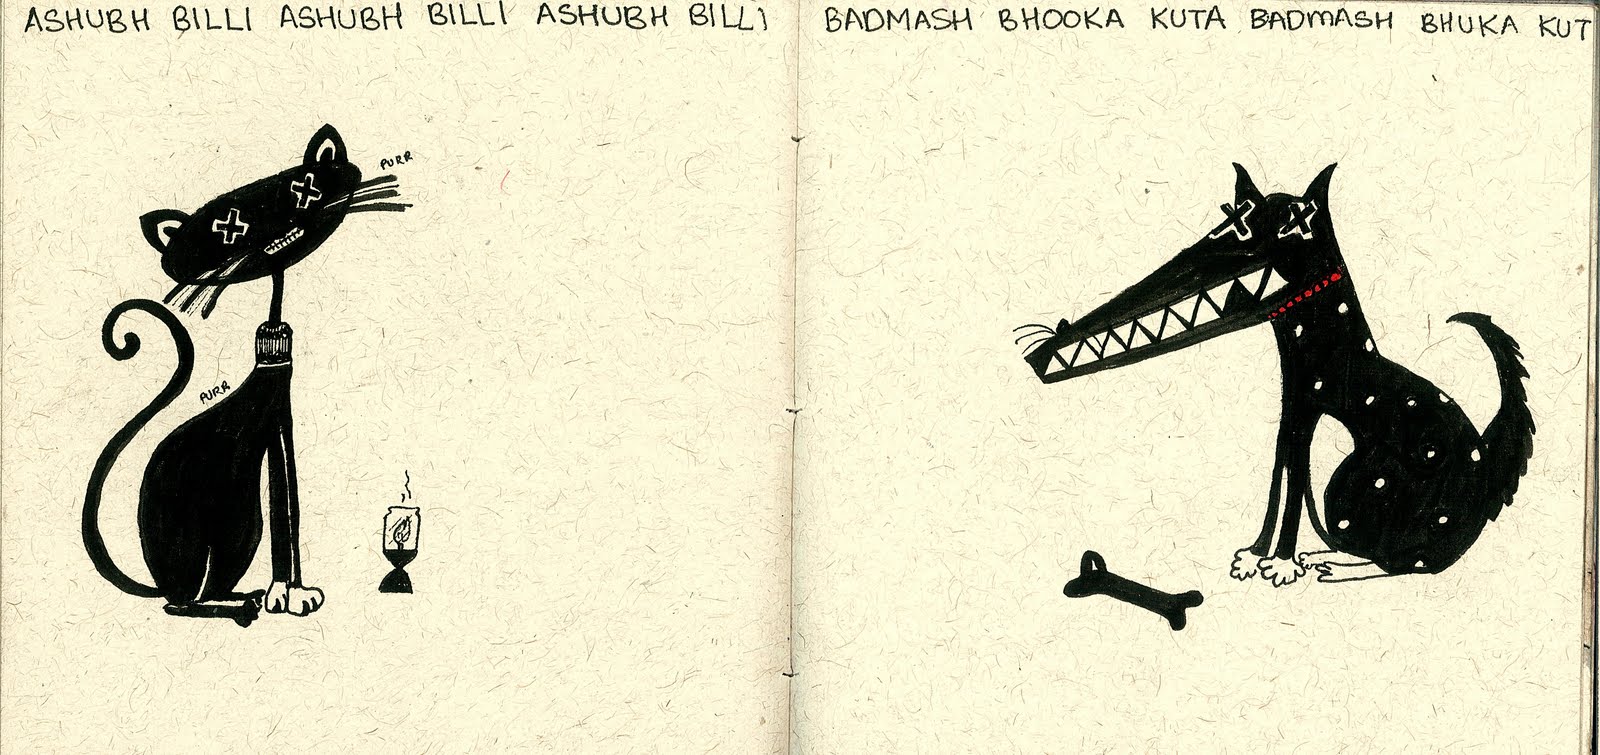 ASHUBH BILLI ASHUBH BILLI ASHUBH BILLI
PURR
PURR
BADMASH BHOOKA KUTA BADMASH BHUKA KUT